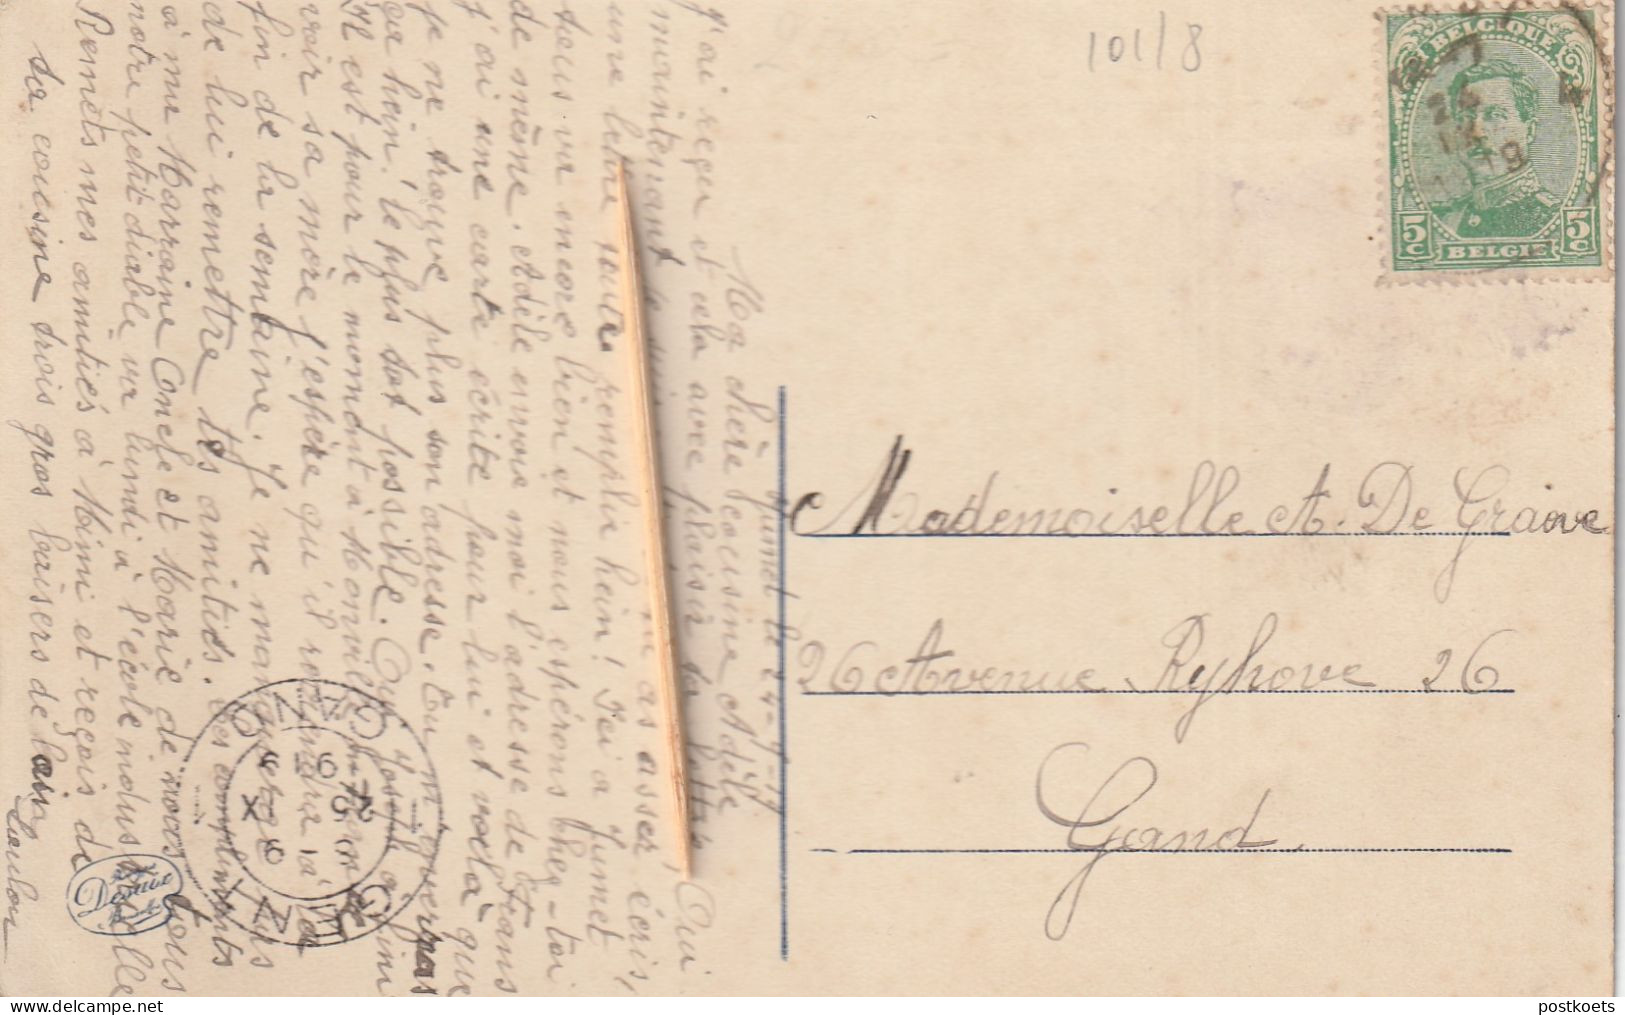 101/8
BELGIQUE
5c 5c
BELGIE
Jumet le 24-9-19
Ma chère cousine Adèle
J'ai reçu et cela avec plaisir ta lettre, Oui
maintenant as assez écris,
une lettre toute remplie hein! Ici à Jumet
tous va encore bien et nous espérons chez-toi
de même. Adèle envoie moi l'adresse de Frans
j'ai une carte écrite pour lui et voilà que
je ne trouve plus son adresse. tu m'enverras
ça hein! le plus tôt possible. Oui Joséphini
Il est pour le moment à
voir sa mère j'espère qu'il reviendra à la
fin de la semaine. Je ne manquerai pas
de lui remettre tes amitiés. Les compliments
à ma Marraine Oncle et Marie de nous tous
notre petit diable va lundi à l'école
Remets mes amitiés à Mimi et reçois de
ta cousine trois gros baisers de loin
Loulou
GAND
GENT
25
IX
Desaix
Mademoiselle A. De Graeve
26 Avenue Ryhove 26
Gand.
postkoets